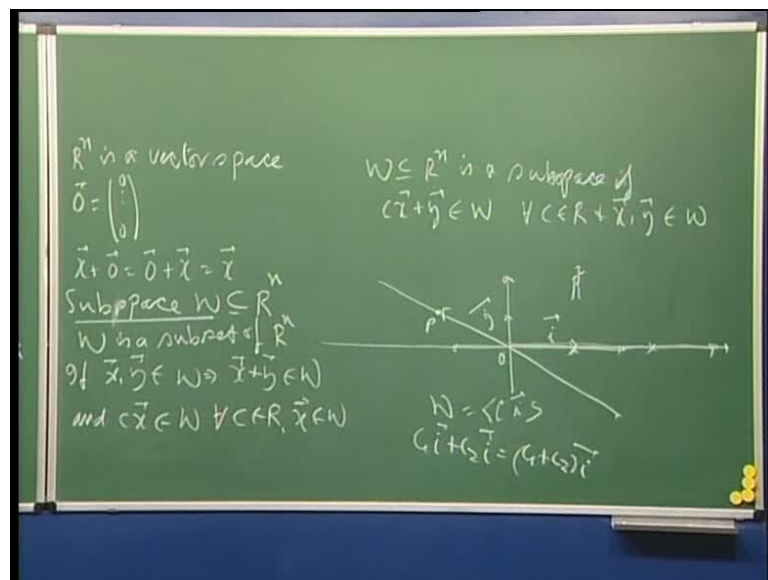 Rⁿ is a vector space
0⃗ = (0 ⋮ 0)
x⃗ + 0⃗ = 0⃗ + x⃗ = x⃗
Subspace W ⊆ Rⁿ
W is a subset of Rⁿ
If x⃗, y⃗ ∈ W ⇒ x⃗ + y⃗ ∈ W
and c x⃗ ∈ W ∀ c ∈ R, x⃗ ∈ W
W ⊆ Rⁿ is a subspace if
c x⃗ + y⃗ ∈ W ∀ c ∈ R + x⃗, y⃗ ∈ W
R²
P
j⃗
i⃗
0
W = <c i⃗>
c₁ i⃗ + c₂ i⃗ = (c₁ + c₂) i⃗